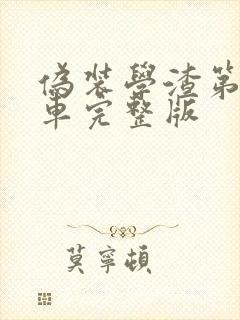 偽裝學渣第
車完整版
莫寧頓